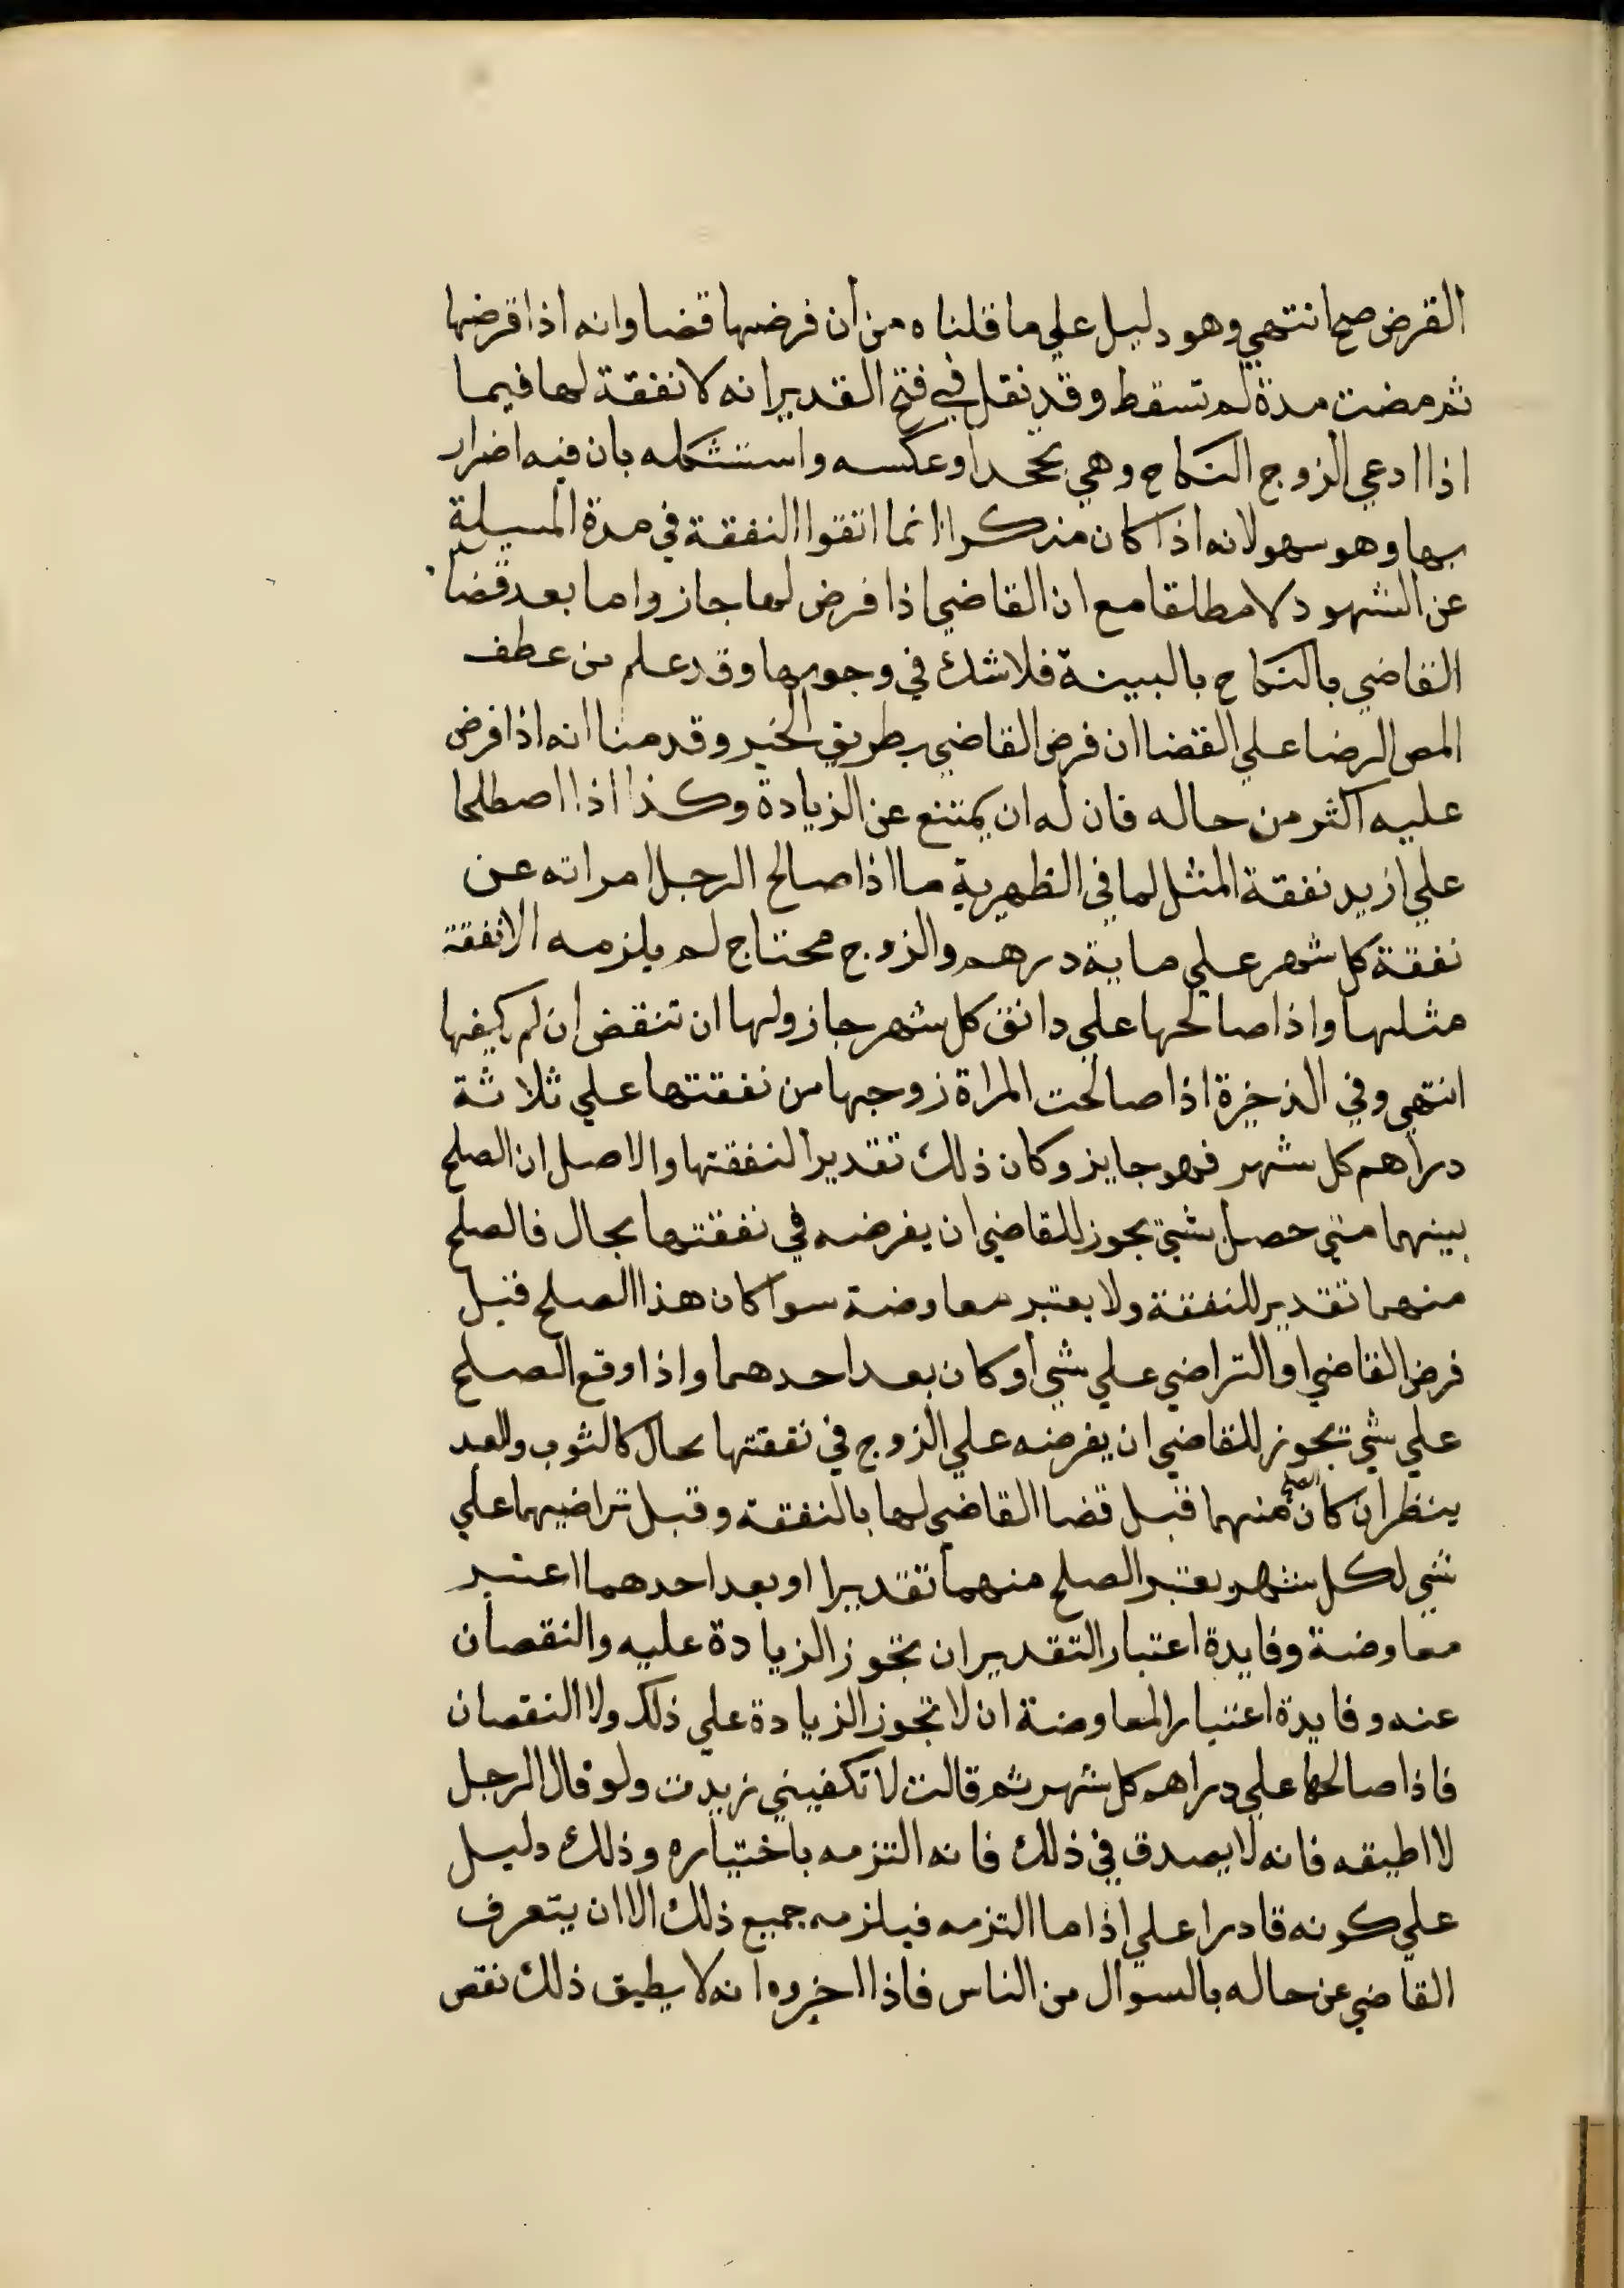 القرض صح انتهي وهو دليل علي ما قلناه من ان فرضها قضا وانه اذا قرضها
ثم مضت مدة لم تسقط وقد نقل في فتح القدير انه لا نفقة لها فيما
اذا ادعي الزوج النكاح وهي تجحد او عكسه واستشكله بان فيه اضرار
بها وهو سهو لانه اذا كان منكرا انما انفقوا النفقة في مدة المسيلة
عن الشهود لا مطلقا مع ان القاضي اذا فرض لها جاز واما بعد قضا
القاضي بالنكاح بالبينة فلا شك في وجوبها وقد علم من عطف
المص الرضا علي القضا ان فرض القاضي بطريق الخبر وقدمنا انه اذا فرض
عليه اكثر من حاله فان له ان يمتنع عن الزيادة وكذا اذا اصطلحا
علي ازيد نفقة المثل لما في الظهيرية ما اذا صالح الرجل امراته عن
نفقة كل شهر علي ماية درهم والزوج محتاج لم يلزمه الا نفقة
مثلها واذا صالحها علي دانق كل شهر جاز ولها ان تنقض ان لم يكفها
انتهي وفي الذخيرة اذا صالحت المراة زوجها من نفقتها علي ثلاثة
دراهم كل شهر فهو جايز وكان ذلك تقديرا لنفقتها والاصل ان الصلح
بينهما متي حصل بشي يجوز للقاضي ان يفرضه في نفقتها بحال فالصلح
منهما تقدير للنفقة ولا يعتبر معاوضة سوا كان هذا الصلح قبل
فرض القاضي او التراضي علي شي او كان بعد احدهما واذا وقع الصلح
علي شي يجوز للقاضي ان يفرضه علي الزوج في نفقتها بحال كالثوب والعبد
ينظر ان كان الصلح منهما قبل قضا القاضي لها بالنفقة وقبل تراضيهما علي
شي لكل شهر يعتبر الصلح منهما تقديرا او بعد احدهما اعتبر
معاوضة وفايدة اعتبار التقدير ان تجوز الزيادة عليه والنقصان
عنه وفايدة اعتبار المعاوضة ان لا تجوز الزيادة علي ذلك ولا النقصان
فاذا صالحها علي دراهم كل شهر ثم قالت لا تكفيني زيدت ولو قال الرجل
لا اطيقه فانه لا يصدق في ذلك فانه التزمه باختياره وذلك دليل
علي كونه قادرا علي اذا ما التزمه فيلزمه جميع ذلك الا ان يتعرف
القاضي عن حاله بالسوال من الناس فاذا اخبروه انه لا يطيق ذلك نقص